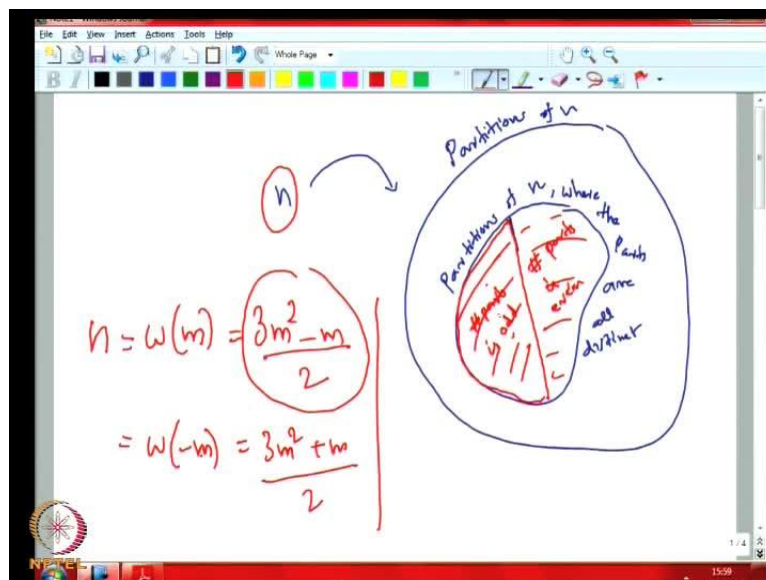 File Edit View Insert Actions Tools Help
Whole Page
Partitions of n
n
Partitions of n, where the parts are all distinct
# parts is odd
# parts is even
n = w(m) = 3m² - m / 2
= w(-m) = 3m² + m / 2
1 / 4
NPTEL
15:59